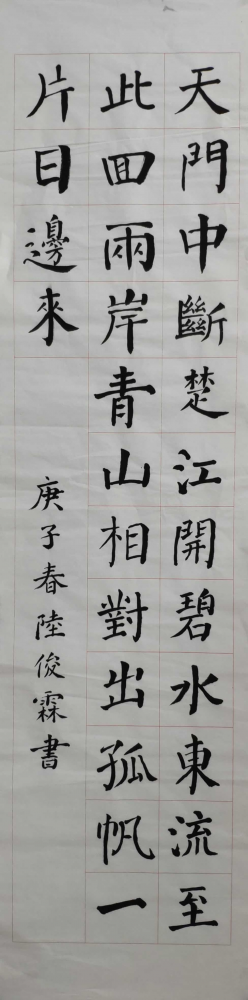 天門中斷楚江開碧水東流至
此回兩岸青山相對出孤帆一
片日邊來
庚子春陸俊霖書